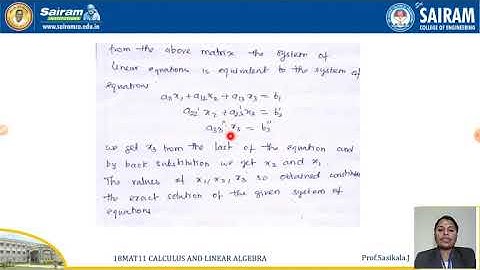 Sairam
INSTITUTIONS
www.sairamce.edu.in
SAIRAM
COLLEGE OF ENGINEERING
from the above matrix the system of
linear equations is equivalent to the system of
equation
a11x1+a12x2+a13x3 = b1
a22'x2+a23'x3 = b2'
a33''x3 = b3''
we get x3 from the last of the equation and
by back substitution we get x2 and x1.
The values of x1,x2,x3 so obtained
the exact solution of the given system of
equations
18MAT11 CALCULUS AND LINEAR ALGEBRA
Prof.Sasikala.J